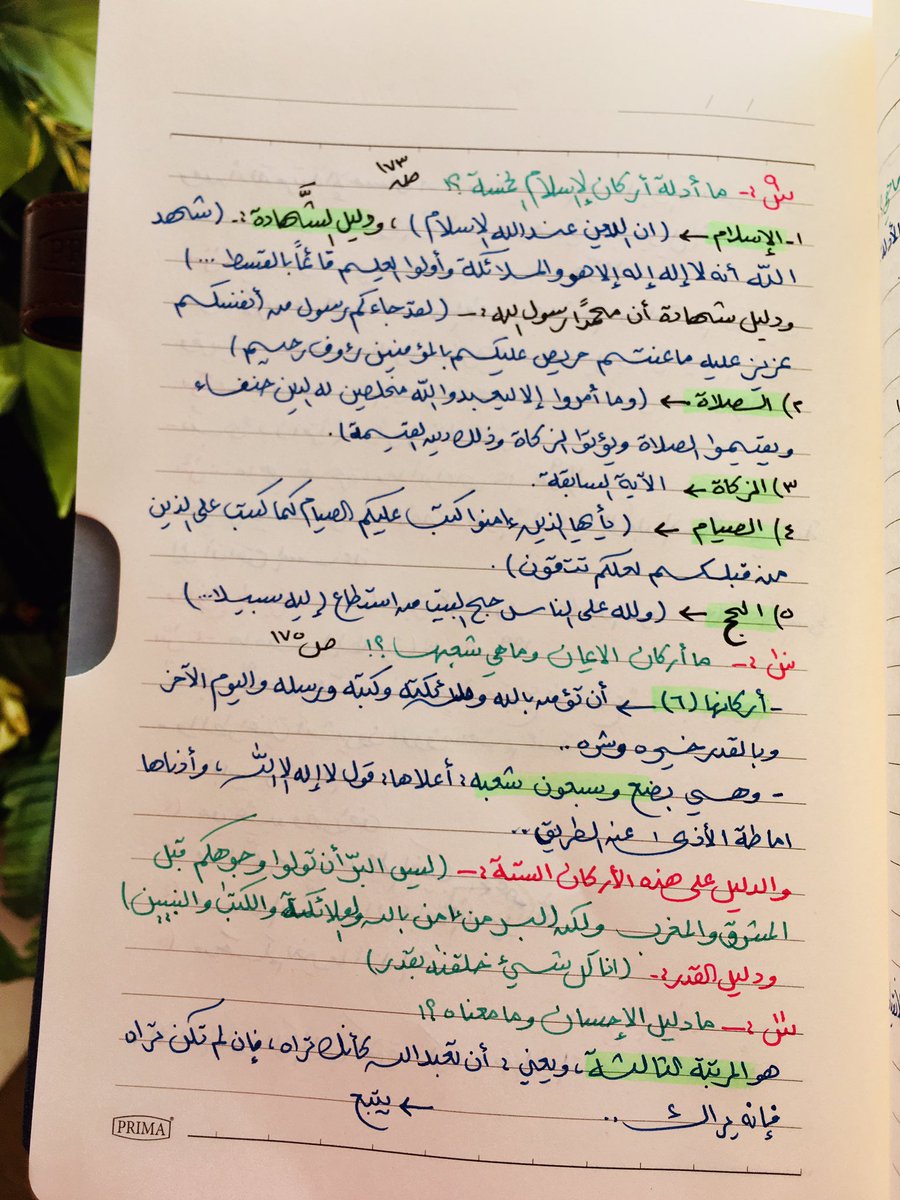 س٩:- ما أدلة أركان الإسلام الخمسة ؟! ص ١٧٣
١- الإسلام ← (ان الدين عند الله الإسلام) ، ودليل الشَّهادة :- (شهد
الله أنه لا إله إلا هو والملائكة وأولوا العلم قائمًا بالقسط ...)
ودليل شهادة أن محمدًا رسول الله :- (لقد جاءكم رسول من أنفسكم
عزيز عليه ما عنتم حريص عليكم بالمؤمنين رؤوف رحيم)
٢) الصلاة ← (وما أمروا إلا ليعبدوا الله مخلصين له الدين حنفاء
ويقيموا الصلاة ويؤتوا الزكاة وذلك دين القيمة).
٣) الزكاة ← الآية السابقة.
٤) الصيام ← (يأيها الذين ءامنوا كتب عليكم الصيام كما كتب على الذين
من قبلكم لعلكم تتقون).
٥) الحج ← (ولله على الناس حج البيت من استطاع إليه سبيلا...)
س١٠:- ما أركان الايمان وما هي شعبها ؟! ص ١٧٥
- أركانها (٦) ← أن تؤمن بالله وملائكته وكتبه ورسله واليوم الآخر
وبالقدر خيره وشره ..
- وهي بضع وسبعون شعبه : أعلاها : قول لا إله إلا الله ، وأدناها
اماطة الأذى عن الطريق ..
والدليل على هذه الأركان الستة :- (ليس البرّ أن تولوا وجوهكم قبل
المشرق والمغرب ولكن البر من ءامن بالله والملائكة والكتب والنبيين)
ودليل القدر :- (انا كل شيئ خلقنه بقدر)
س١١:- ما دليل الإحسان وما معناه ؟!
هو المرتبة الثالثة ، ويعني : أن تعبد الله كأنك تراه ، فإن لم تكن تراه
فإنه يراك .. ← يتبع
PRIMA